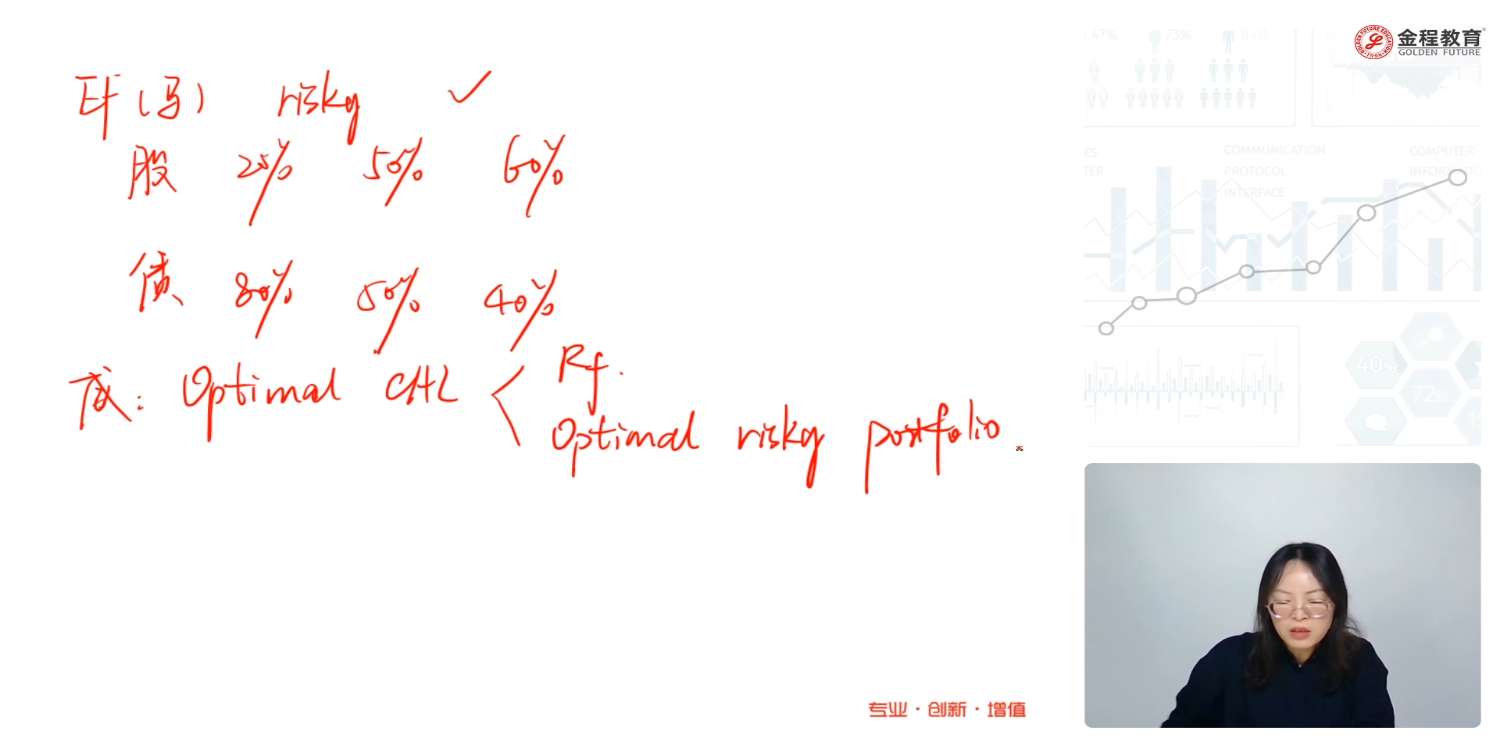 EF (马) risky ✓
股 20% 50% 60%
债 80% 50% 40%
成: Optimal CAL < Rf.
Optimal risky portfolio
金程教育
GOLDEN FUTURE
专业·创新·增值
47%
73%
COMMUNICATION
PROTOCOL
INTERFACE
COMPUTER
40%
72%